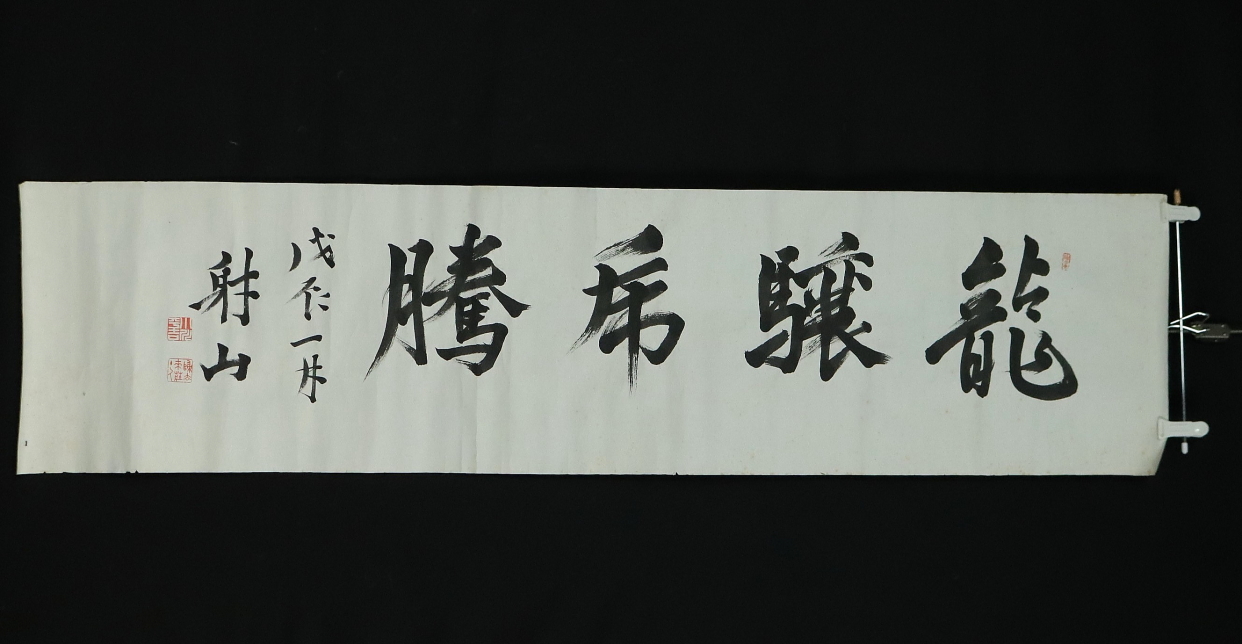 龍驤虎騰
戊辰一月
射山